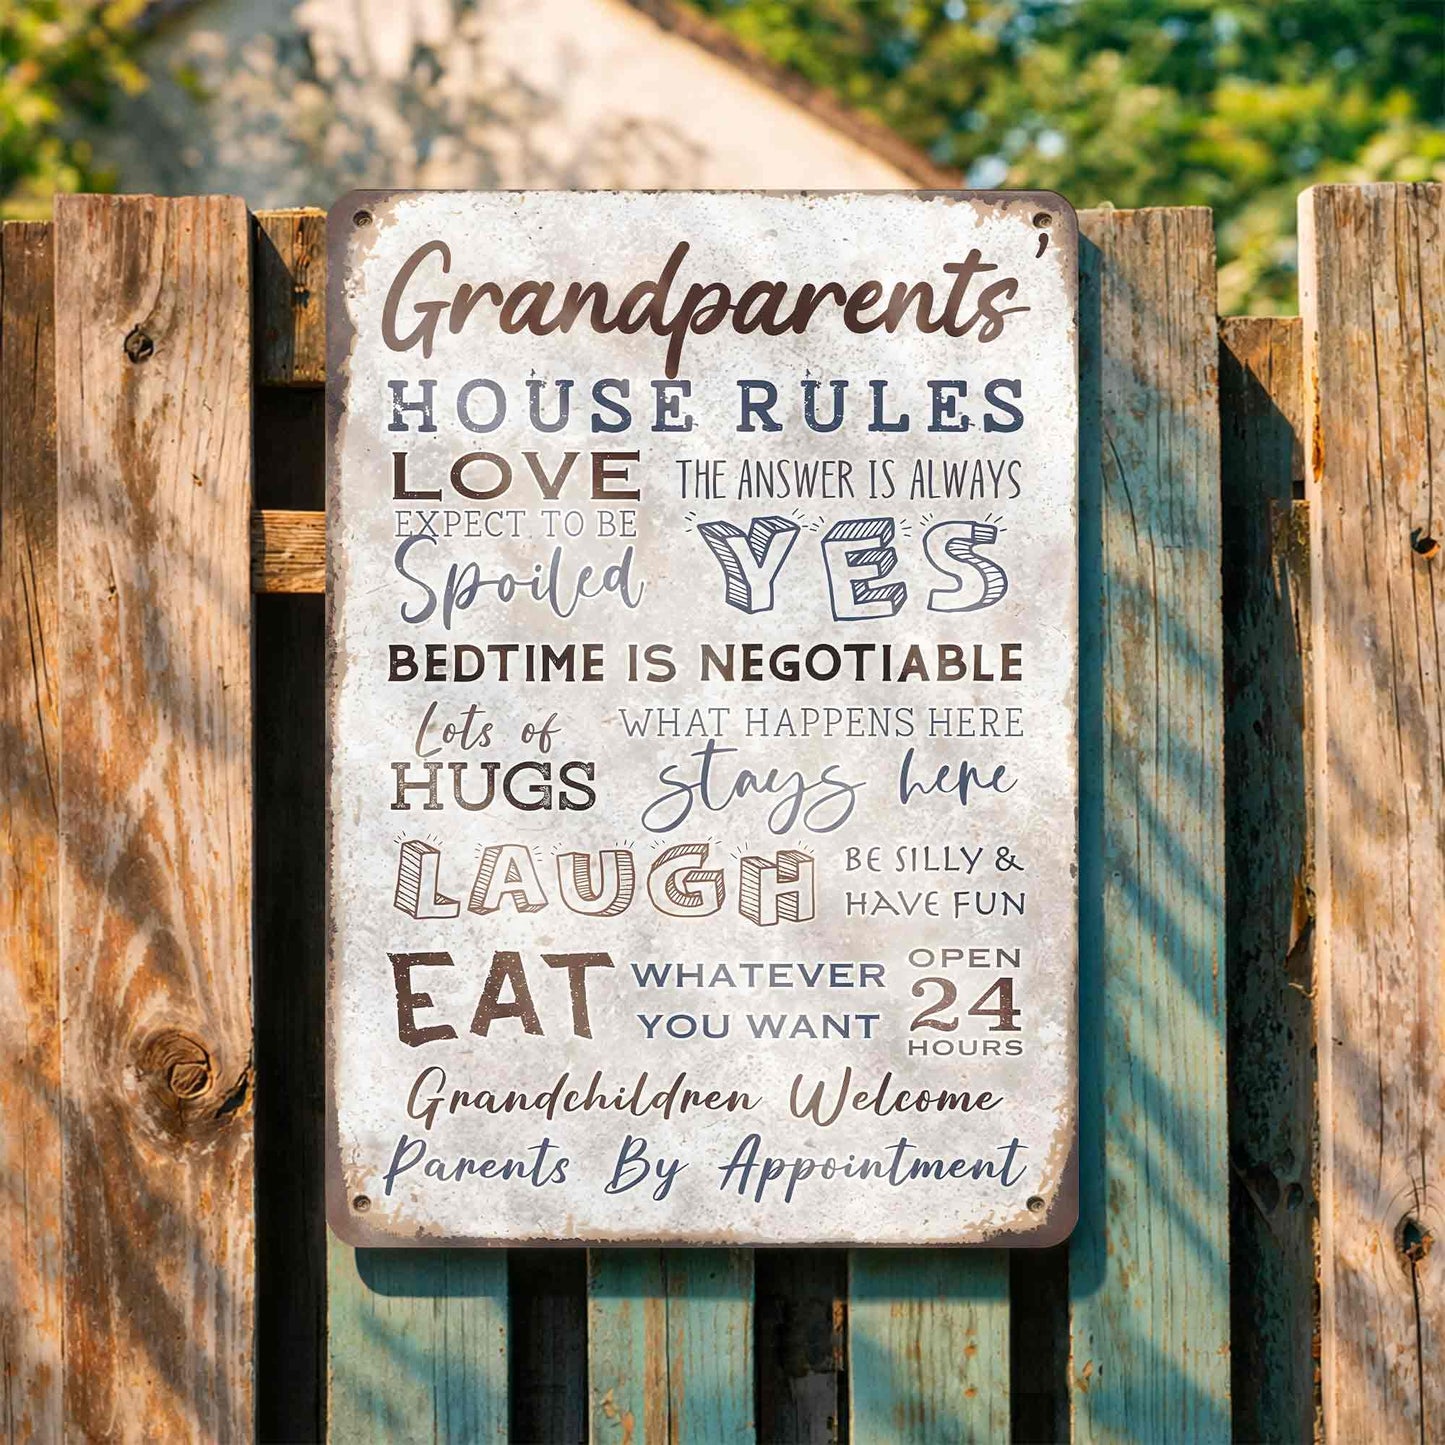 Grandparents'
HOUSE RULES
LOVE
EXPECT TO BE
Spoiled
THE ANSWER IS ALWAYS
YES
BEDTIME IS NEGOTIABLE
Lots of
HUGS
WHAT HAPPENS HERE
stays here
LAUGH
BE SILLY &
HAVE FUN
EAT
WHATEVER
YOU WANT
OPEN
24
HOURS
Grandchildren Welcome
Parents By Appointment